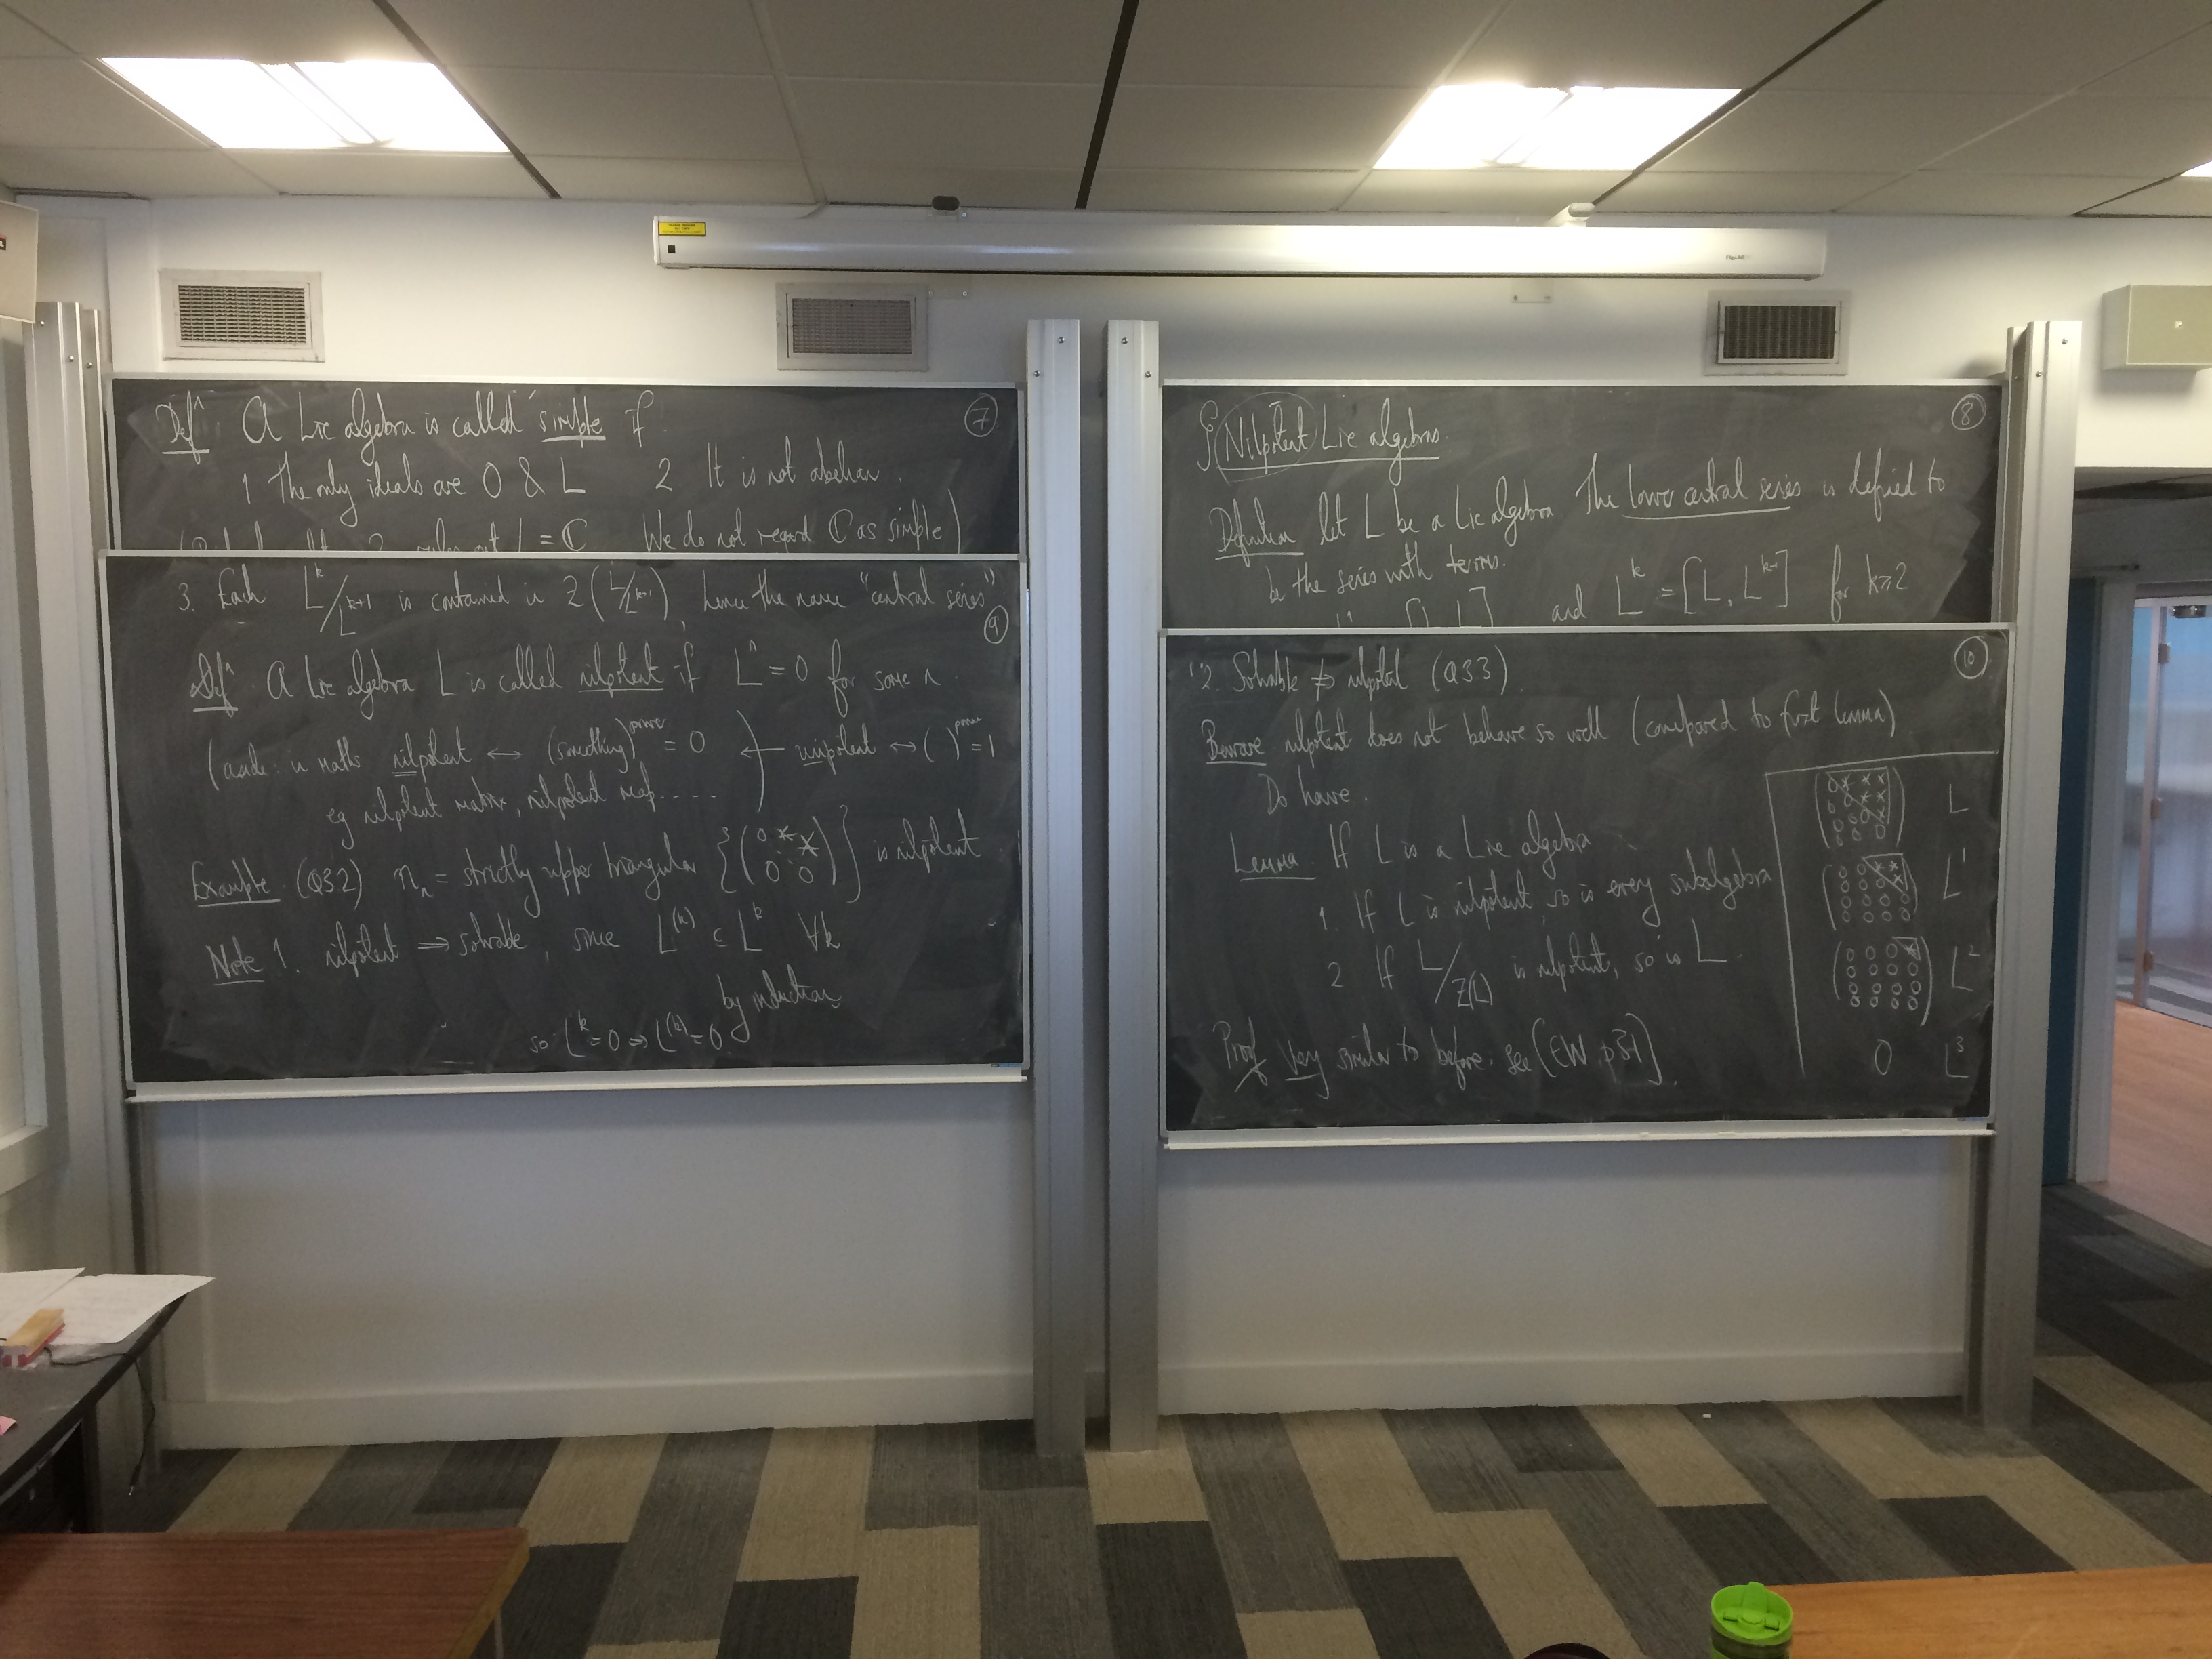 Defⁿ A Lie algebra is called simple if ⑦
1 The only ideals are 0 & L 2 It is not abelian.
= ℂ We do not regard ℂ as simple)
3. Each L^k/L^{k+1} is contained in Z(L/L^{k+1}), hence the name "central series" ⑨
Defⁿ. A Lie algebra L is called nilpotent if L^n = 0 for some n.
(aside: in maths nilpotent ↔ (something)^power = 0 ← unipotent ↔ ( )^power = 1
eg nilpotent matrix, nilpotent map.....)
Example. (Q3.2) n_n = strictly upper triangular {(0 * * * 0 0)} is nilpotent.
Note 1. nilpotent ⇒ solvable, since L^(k) ⊆ L^k ∀k
by induction
so L^k = 0 ⇒ L^(k) = 0.
§ Nilpotent Lie algebras. ⑧
Definition let L be a Lie algebra. The lower central series is defined to
be the series with terms.
L^1 = [L, L] and L^k = [L, L^{k-1}] for k≥2
2. Solvable ⇏ nilpotent (Q3.3). ⑩
Beware nilpotent does not behave so well (compared to first lemma)
Do have.
Lemma. If L is a Lie algebra
1. If L is nilpotent, so is every subalgebra
2 If L/Z(L) is nilpotent, so is L.
Proof Very similar to before. see [EW, p31].
(0 * * *
0 0 * *
0 0 0 *
0 0 0 0) L
(0 0 * *
0 0 0 *
0 0 0 0
0 0 0 0) L^1
(0 0 0 *
0 0 0 0
0 0 0 0
0 0 0 0) L^2
0 L^3